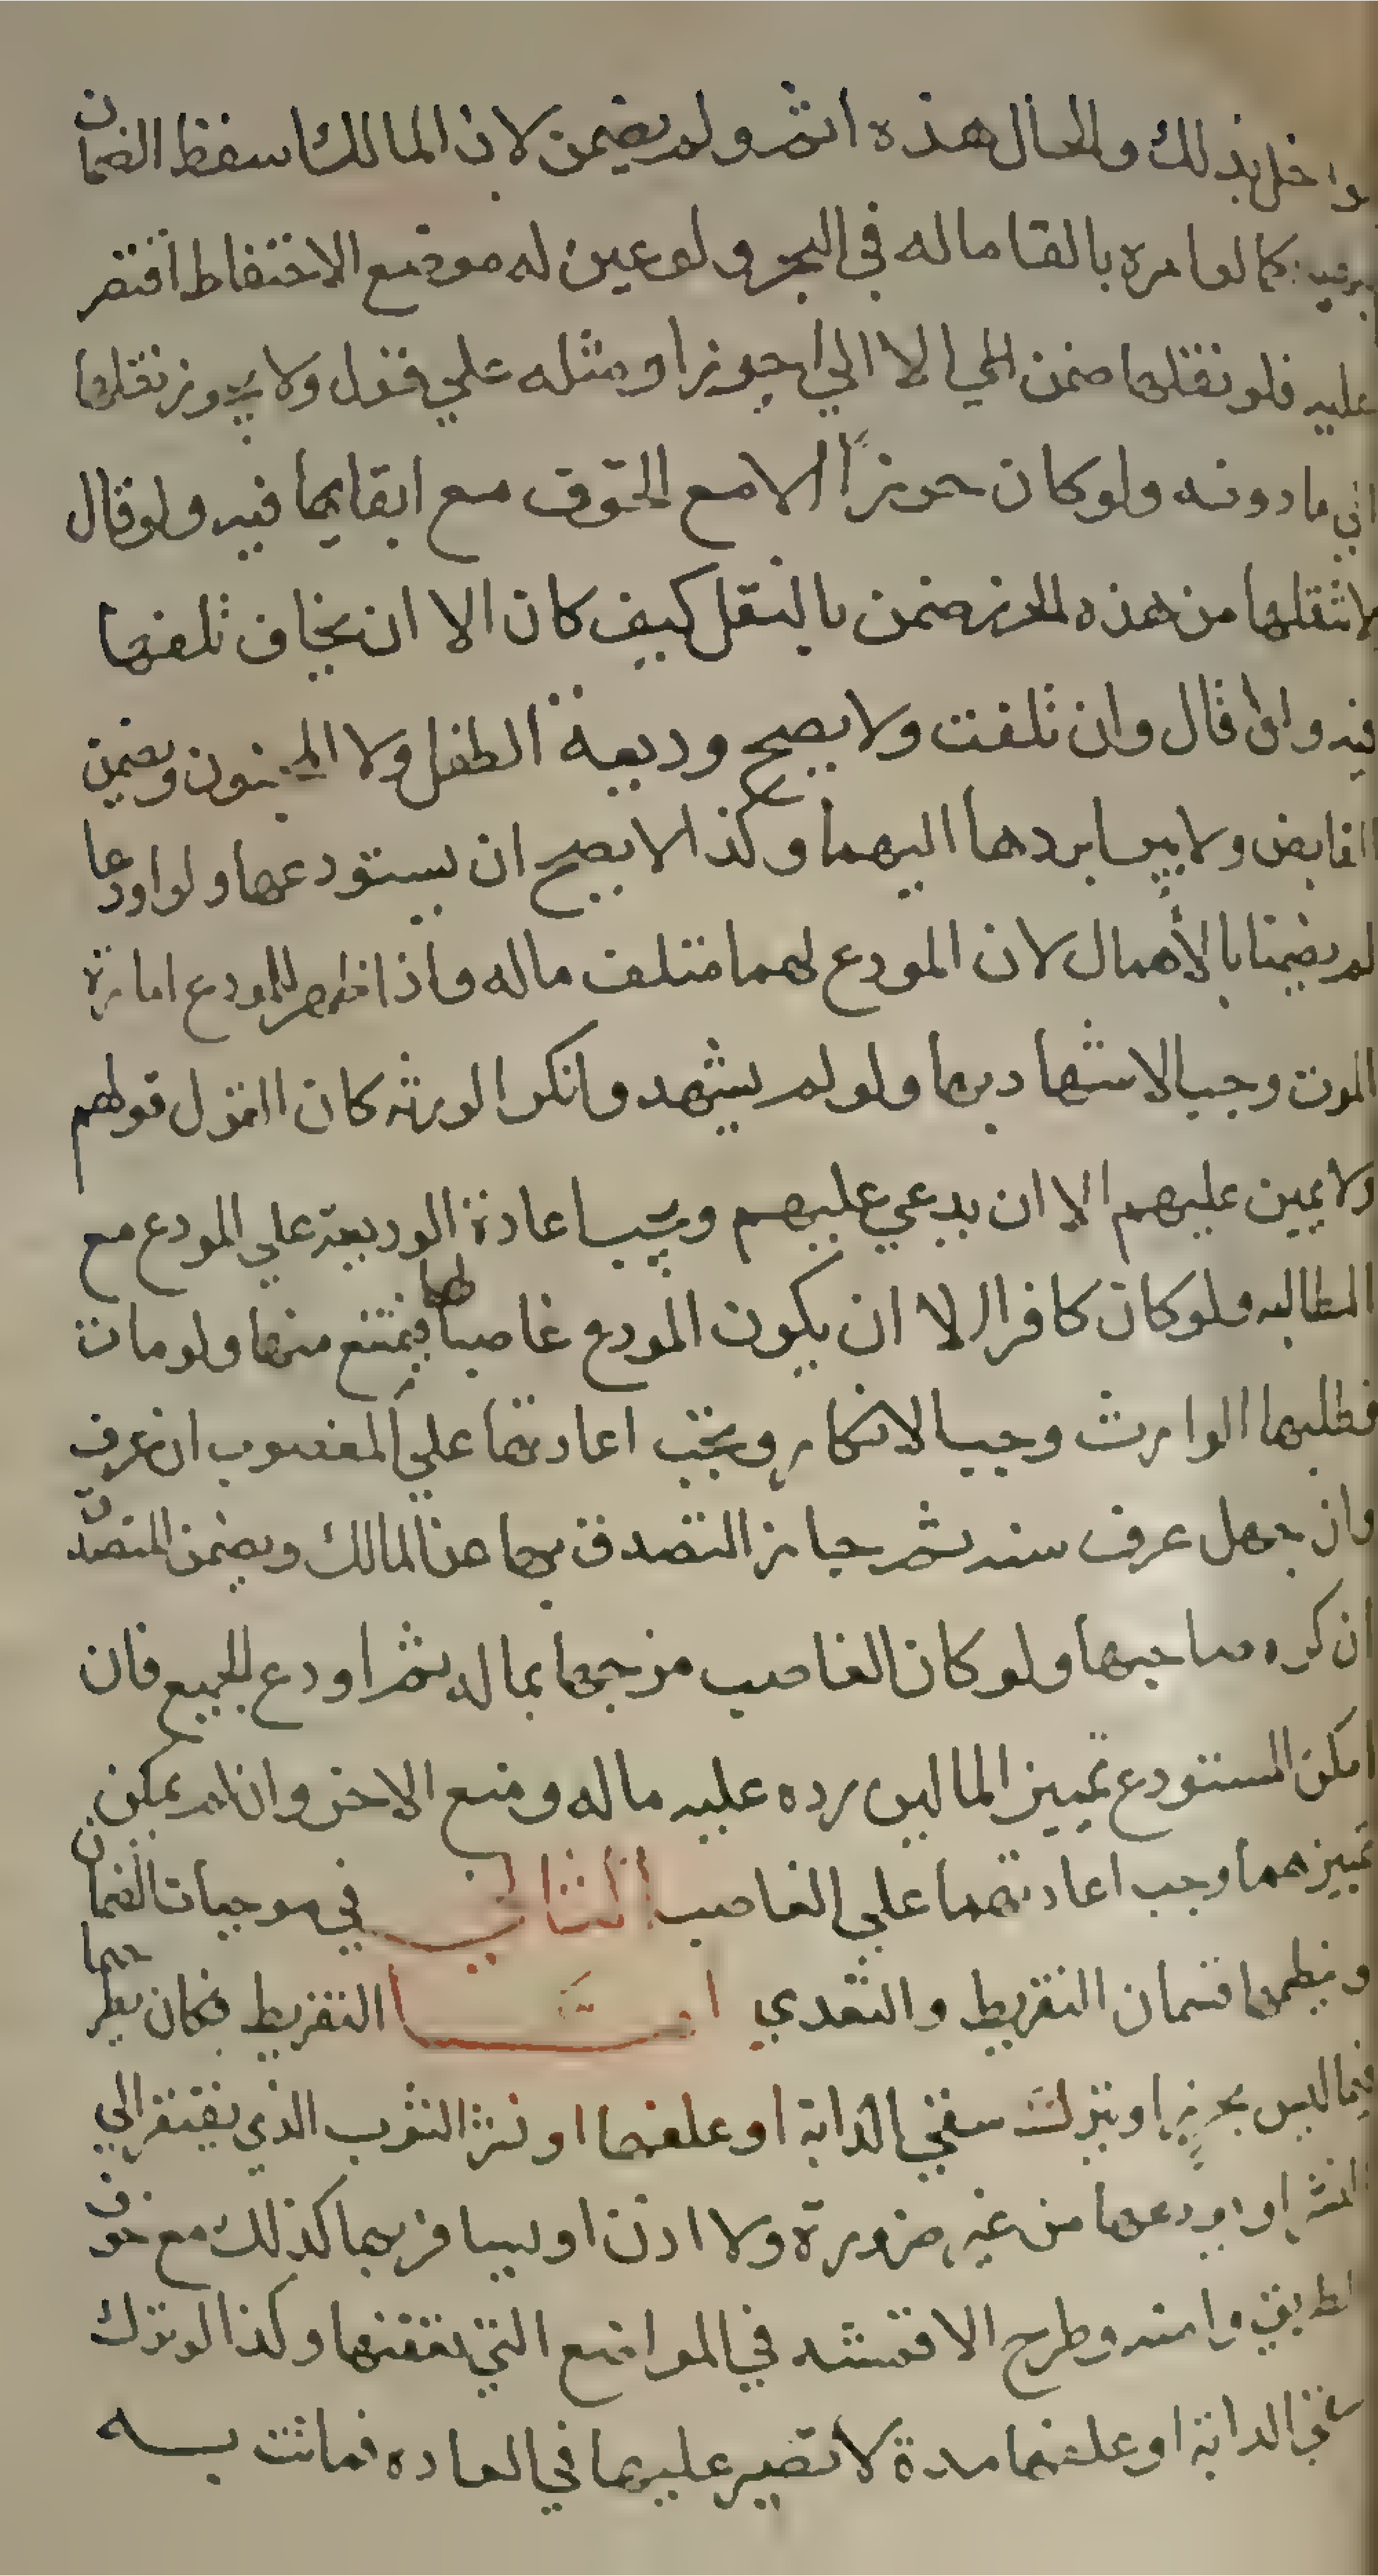 ولو اخل بذلك والحال هذه اثم ولم يضمن لان المالك اسقط الضمان
بنهيه كما لو امره بالقا ماله في البحر ولو عين له موضع الاحتفاظ اقتصر
عليه فلو نقلها ضمن الا الي احرز او مثله علي قول ولا يجوز نقلها
الي ما دونه ولو كان حرزاً الا مع الخوف مع ابقايها فيه ولو قال
لا تنقلها من هذه الحرز ضمن بالنقل كيف كان الا ان يخاف تلفها
فيه وان قال وان تلفت ولا يصح وديعة الطفل ولا المجنون ويضمن
القابض ولا يبرا بردها اليهما وكذا لا يصح ان يستودعا ولو اودعا
لم يضمنا بالاهمال لان المودع لهما متلف ماله واذا ظهر للمودع امارة
الموت وجب الاشهاد بها ولو لم يشهد وانكر الورثه كان القول قولهم
ولا يمين عليهم الا ان يدعي عليهم ويجب اعادة الوديعة علي المودع مع
المطالبه ولو كان كافرا الا ان يكون المودع غاصبا لها فيمنع منها ولو مات
فطلبها الوارث وجب الانكار ويجب اعادتها علي المغصوب ان عرف
وان جهل عرف سنه ثم جاز التصدق بها عن المالك ويضمن المتصدق
ان كره صاحبها ولو كان الغاصب مزجها بماله ثم اودع الجميع فان
امكن المستودع تمييز المالين رده عليه ماله ومنع الاخر وان لم يمكن
تمييزهما وجب اعادتهما علي الغاصب الثاني في موجبات الضمان
وينظمها قسمان التفريط والتعدي اما التفريط فكان يطرحها
فيما ليس بحرز او يترك سقي الدابة او علفها او نشر الثوب الذي يفتقر الي
النشر او يودعها من غير ضرورة ولا اذن او يسافر بها كذلك مع خوف
الطريق وامنه وطرح الاقمشه في المواضع التي تعفنها وكذا لو ترك
سقي الدابة او علفها مدة لا تصبر عليها في العاده فماتت به